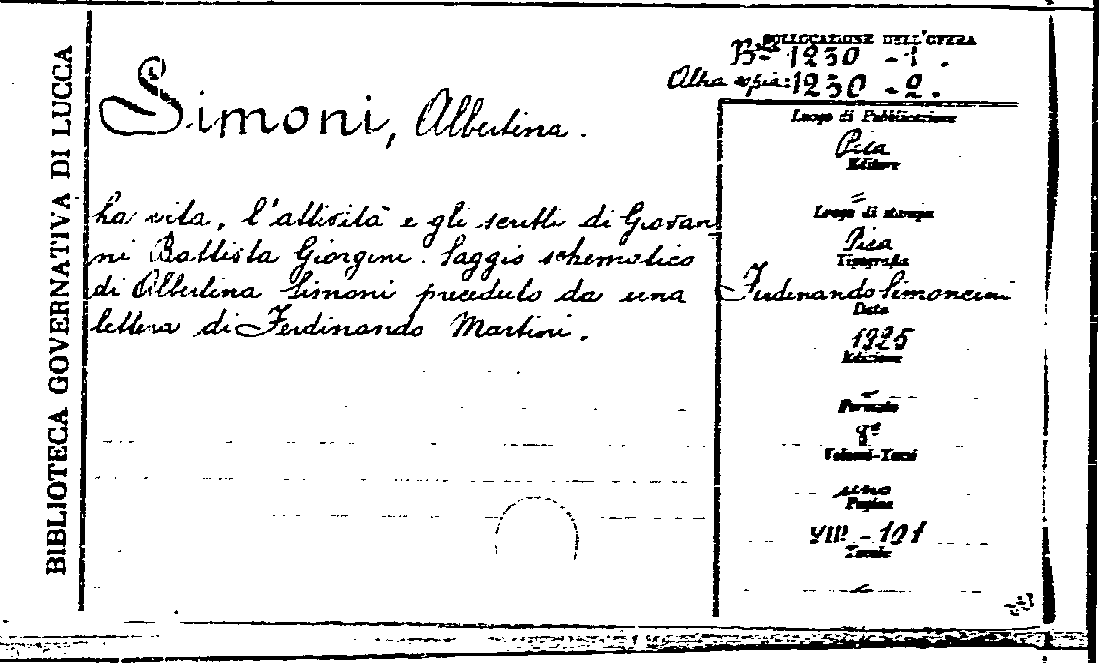 BIBLIOTECA GOVERNATIVA DI LUCCA
Simoni, Albertina.
La vita, l'attività e gli scritti di Giovan
ni Battista Giorgini. Saggio schematico
di Albertina Simoni preceduto da una
lettera di Ferdinando Martini.
COLLOCAZIONE DELL'OPERA
1230 - 1.
Altra copia: 1230 - 2.
Luogo di Pubblicazione
Pisa
Editore
=
Luogo di stampa
Pisa
Tipografia
Ferdinando Simoncini
Data
1925
Edizione
Formato
8º
Volumi-Tomi
uno
Pagine
VIII - 101
Tavole